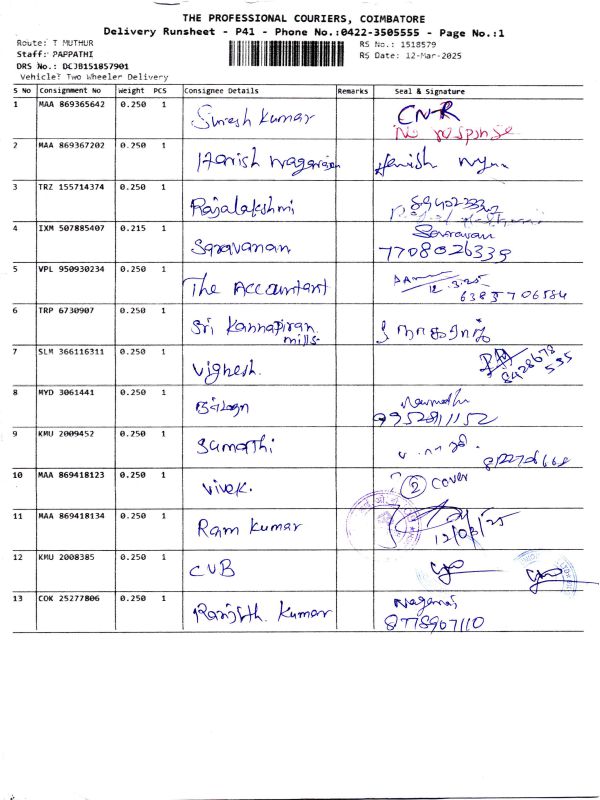 THE PROFESSIONAL COURIERS, COIMBATORE
Delivery Runsheet - P41 - Phone No.:0422-3505555 - Page No.:1
Route: T MUTHUR RS No.: 1518579
Staff: PAPPATHI RS Date: 12-Mar-2025
DRS No.: DCJB151857901
Vehicle: Two Wheeler Delivery
S No Consignment No Weight PCS Consignee Details Remarks Seal & Signature
1 MAA 869365642 0.250 1 Suresh kumar CN-R
No response
2 MAA 869367202 0.250 1 Harish Nagarajan Harish
3 TRZ 155714374 0.250 1 Rajalakshmi
4 IXM 507885407 0.215 1 Saravanan Saravanan
7708026339
5 VPL 950930234 0.250 1 The Accountant 12.3.25
6385706584
6 TRP 6730907 0.250 1 Sri Kannapiran
mills.
7 SLM 366116311 0.250 1 Vighesh. 8428678
535
8 MYD 3061441 0.250 1
9952811152
9 KMU 2009452 0.250 1 Sumathi
10 MAA 869418123 0.250 1 Vivek. 2 cover
11 MAA 869418134 0.250 1 Ram kumar 12/03/25
12 KMU 2008385 0.250 1 CUB
13 COK 25277806 0.250 1 Ranjith kumar
8778907110